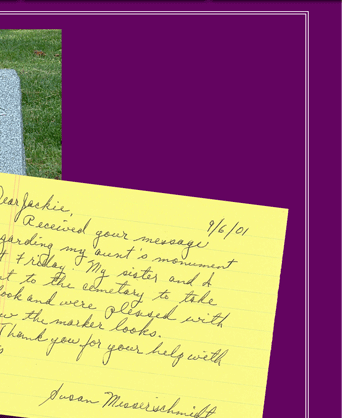 9/6/01
Dear Jackie,
Received your message
garding my aunt's monument
Friday. My sister and I
nt to the cemetary to take
ook and were pleased with
w the marker looks.
Thank you for your help with
Susan Misserschmidt